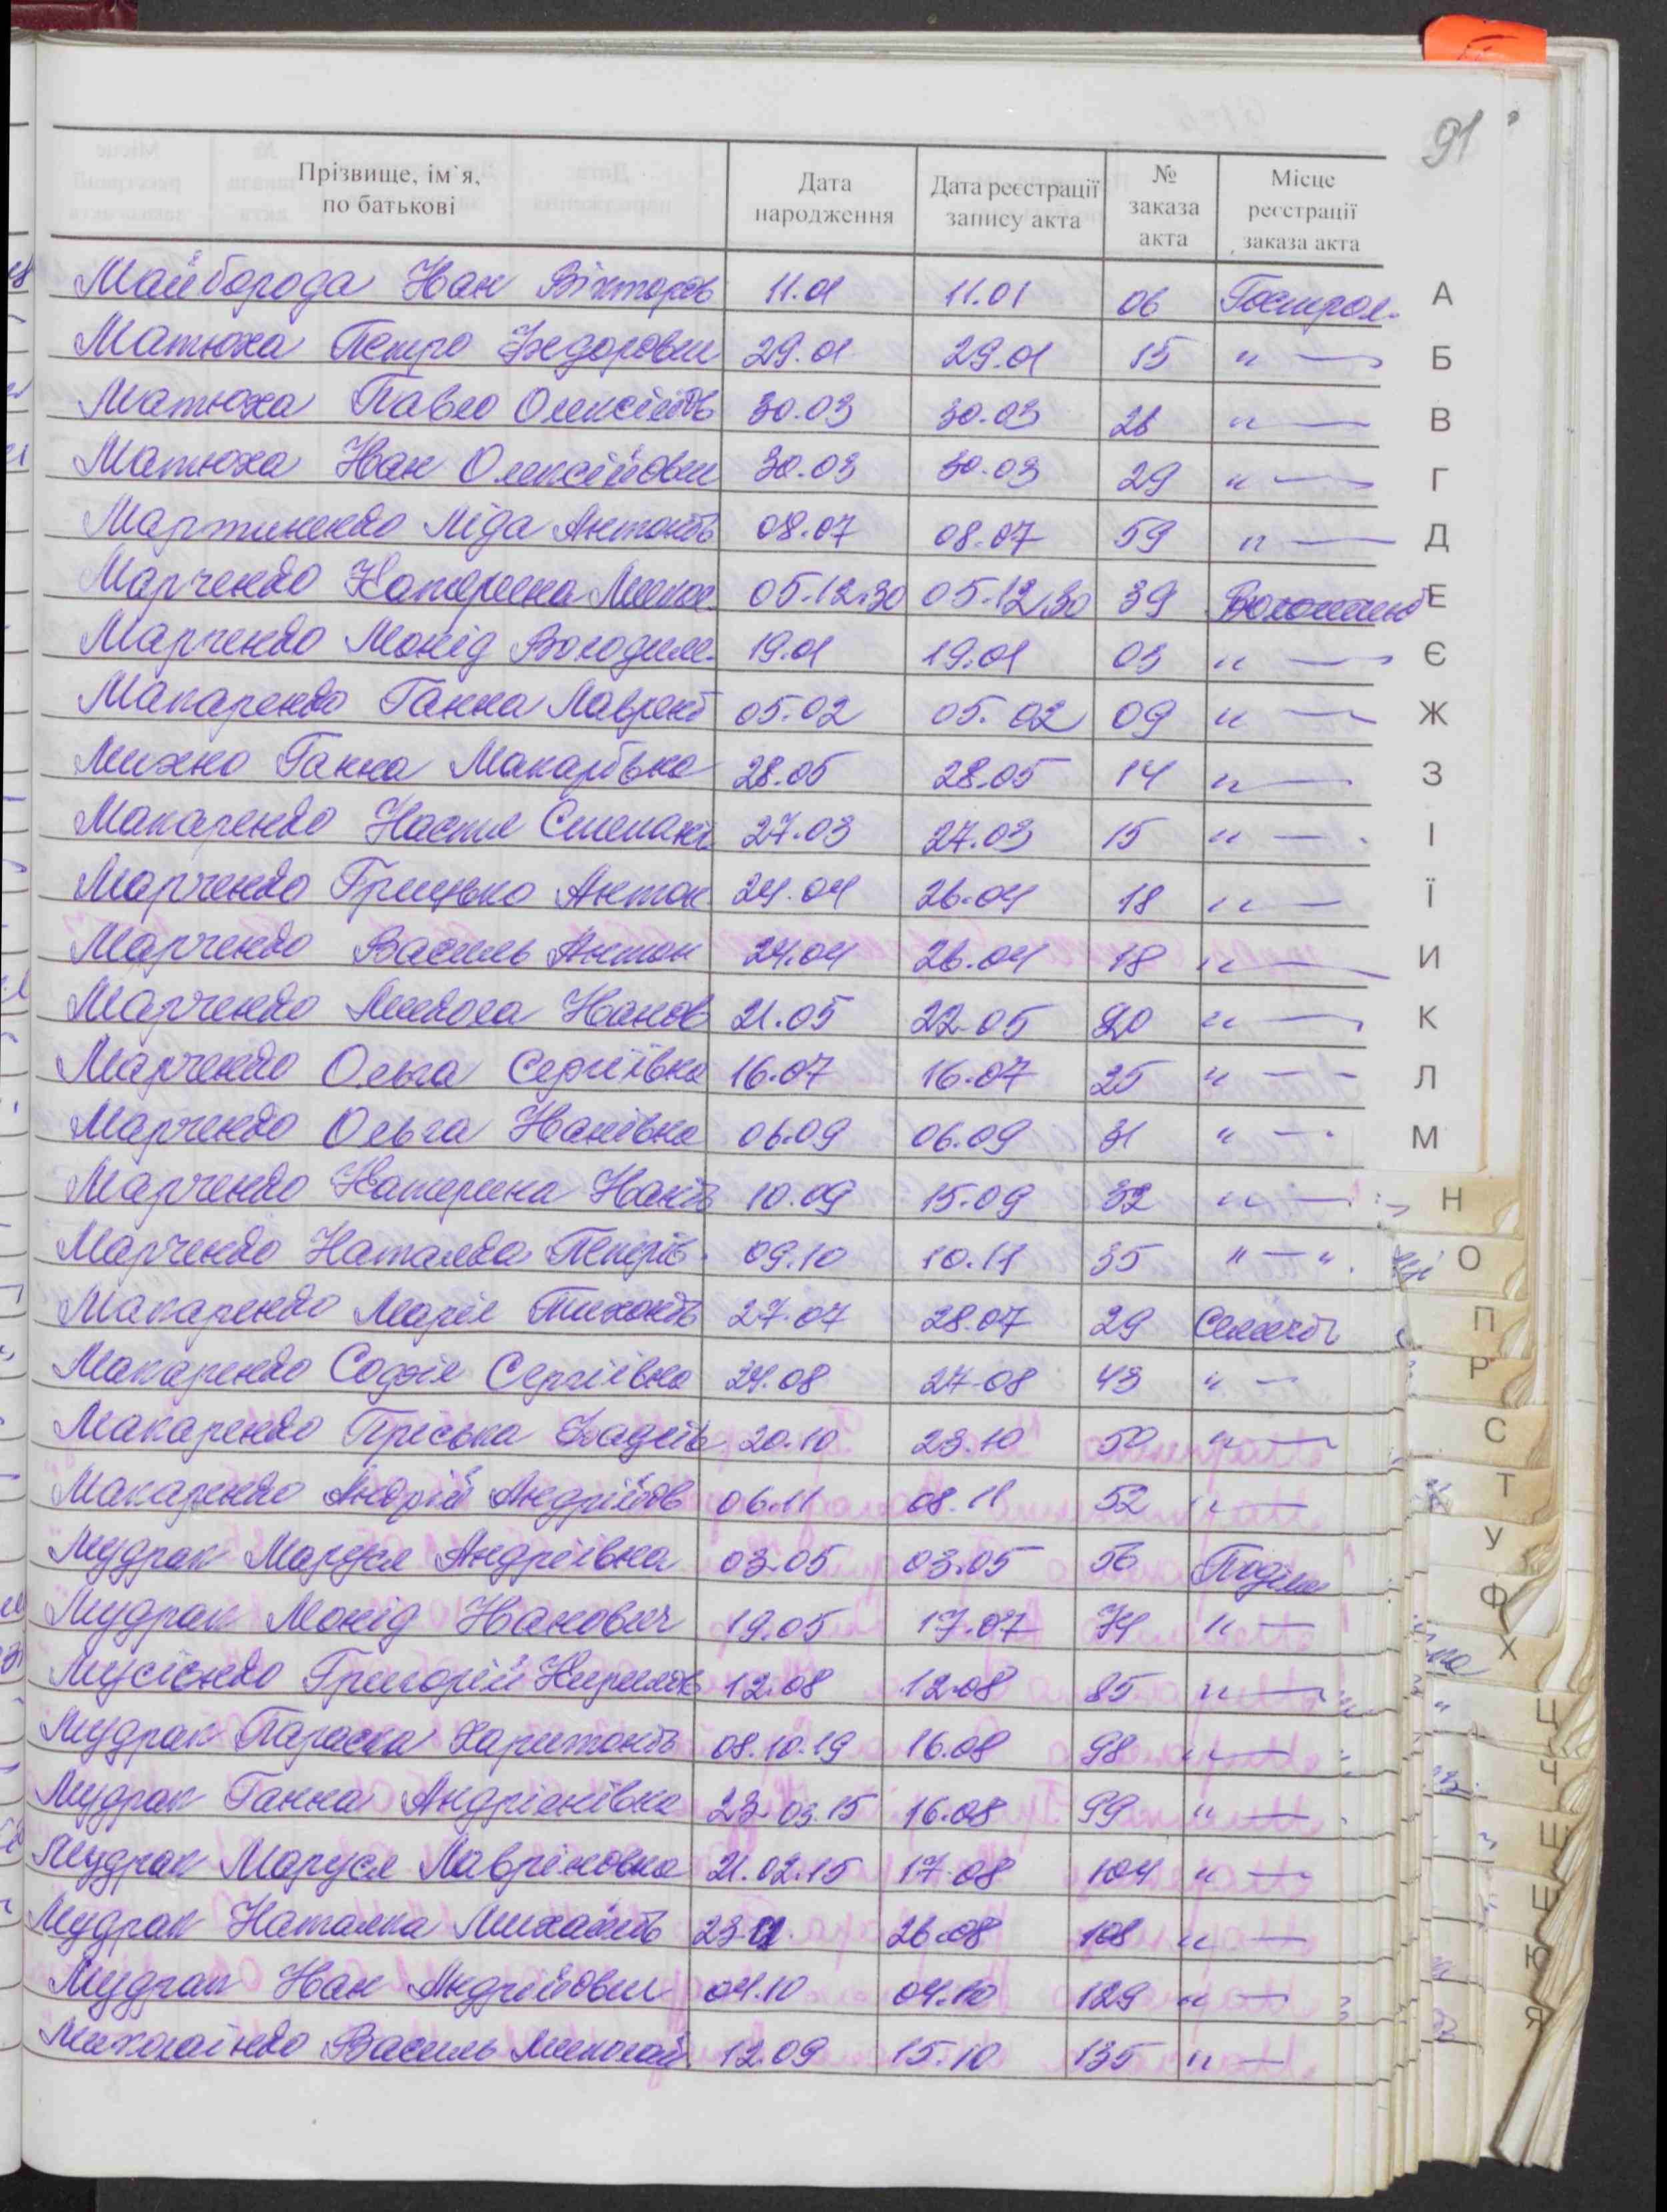 91
Прізвище, ім`я, по батькові Дата народження Дата реєстрації запису акта № заказа акта Місце реєстрації заказа акта
Майборода Іван Вікторов 11.01 11.01 06 Гострол.
Матюха Петро Федорович 29.01 29.01 15 " —
Матюха Павло Олексійов 30.03 30.03 28 " —
Матюха Іван Олексійович 30.03 30.03 29 " —
Мартиненко Ліда Антонів 08.07 08.07 59 " —
Марченко Катерина 05.12.30 05.12.30 39
Марченко Леонід Володим. 19.01 19.01 03 " —
Макаренко Ганна Лаврент 05.02 05.02 09 " —
Михно Ганна Макарівна 28.05 28.05 14 " —
Макаренко Настя Степані 27.03 27.03 15 " —
Марченко Грицько Антон 24.04 26.04 18 " —
Марченко Василь Антон 24.04 26.04 18 " —
Марченко Микола Іванов 21.05 22.05 20 " —
Марченко Ольга Сергіївна 16.07 16.07 25 " — –
Марченко Ольга Іванівна 06.09 06.09 31 " — .
Марченко Катерина Іванів 10.09 15.09 32 " — .
Марченко Наталка Петрів. 09.10 10.11 35 " — " .
Макаренко Марія Тихонів 27.07 28.07 29
Макаренко Софія Сергіївна 24.08 27.08 43 " —
Макаренко Пріська Фадеїв 20.10 23.10 50 " —
Макаренко Андрій Андрійов 06.11 08.11 52 " —
Мудрак Маруся Андріївна 03.05 03.05 56 Поділл
Мудрак Леонід Іванович 19.05 17.07 74 " —
Мусієнко Григорій Кирилов 12.08 12.08 85 " —
Мудрак Параска Харитонів 08.10.19 16.08 98 " —
Мудрак Ганна Андріанівна 23.03.15 16.08 99 " —
Мудрак Маруся Лавріновна 21.02.15 17.08 104 " —
Мудрак Наталка Михайлів 23. 26.08 108 " —
Мудрак Іван Андрійович 04.10 04.10 129 " —
Василь Миколай. 12.09 15.10 135 " —
А
Б
В
Г
Д
Е
Є
Ж
З
І
Ї
И
К
Л
М
Н
О
П
Р
С
Т
У
Ф
Х
Ц
Ч
Щ
Е
Ю
Я